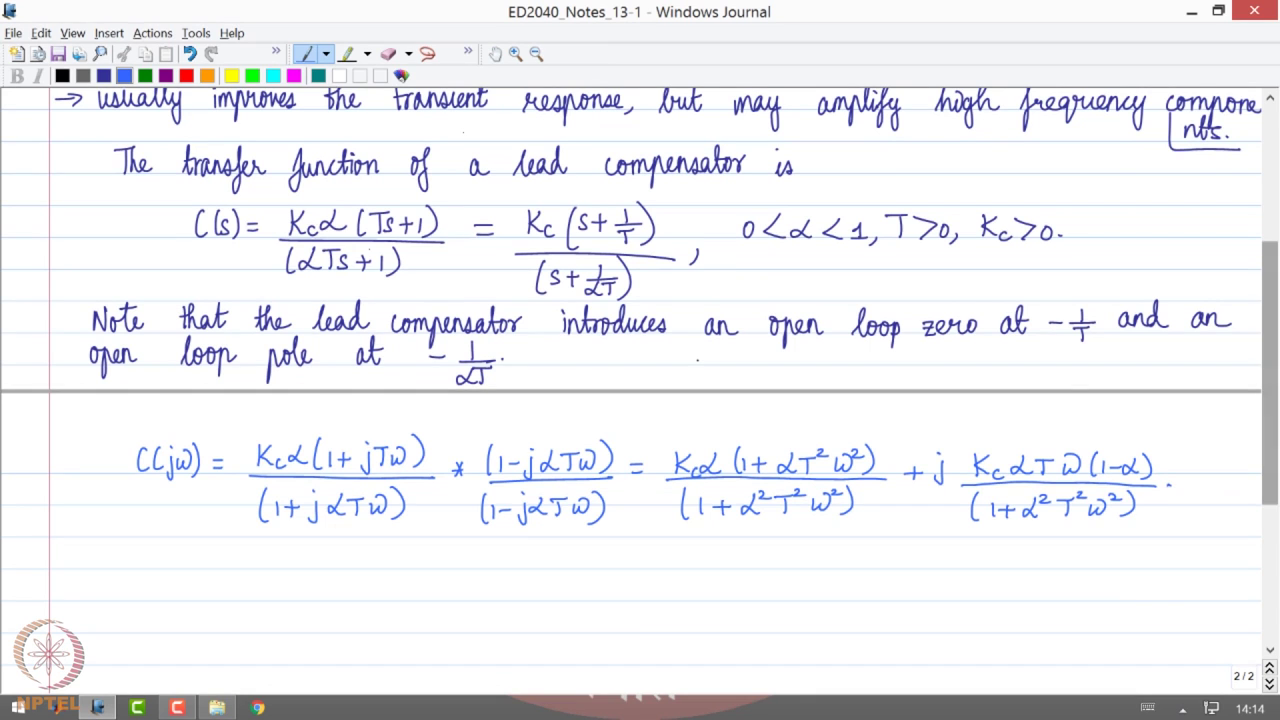 ED2040_Notes_13-1 - Windows Journal
File Edit View Insert Actions Tools Help
→ usually improves the transient response, but may amplify high frequency compone
nts.
The transfer function of a lead compensator is
C(s) = Kcα (Ts+1) / (αTs+1) = Kc (s + 1/T) / (s + 1/αT), 0<α<1, T>0, Kc>0.
Note that the lead compensator introduces an open loop zero at -1/T and an
open loop pole at -1/αT.
C(jω) = Kcα(1+jTω) / (1+jαTω) * (1-jαTω) / (1-jαTω) = Kcα (1+αT²ω²) / (1+α²T²ω²) + j KcαTω(1-α) / (1+α²T²ω²).
2 / 2
NPTEL
14:14